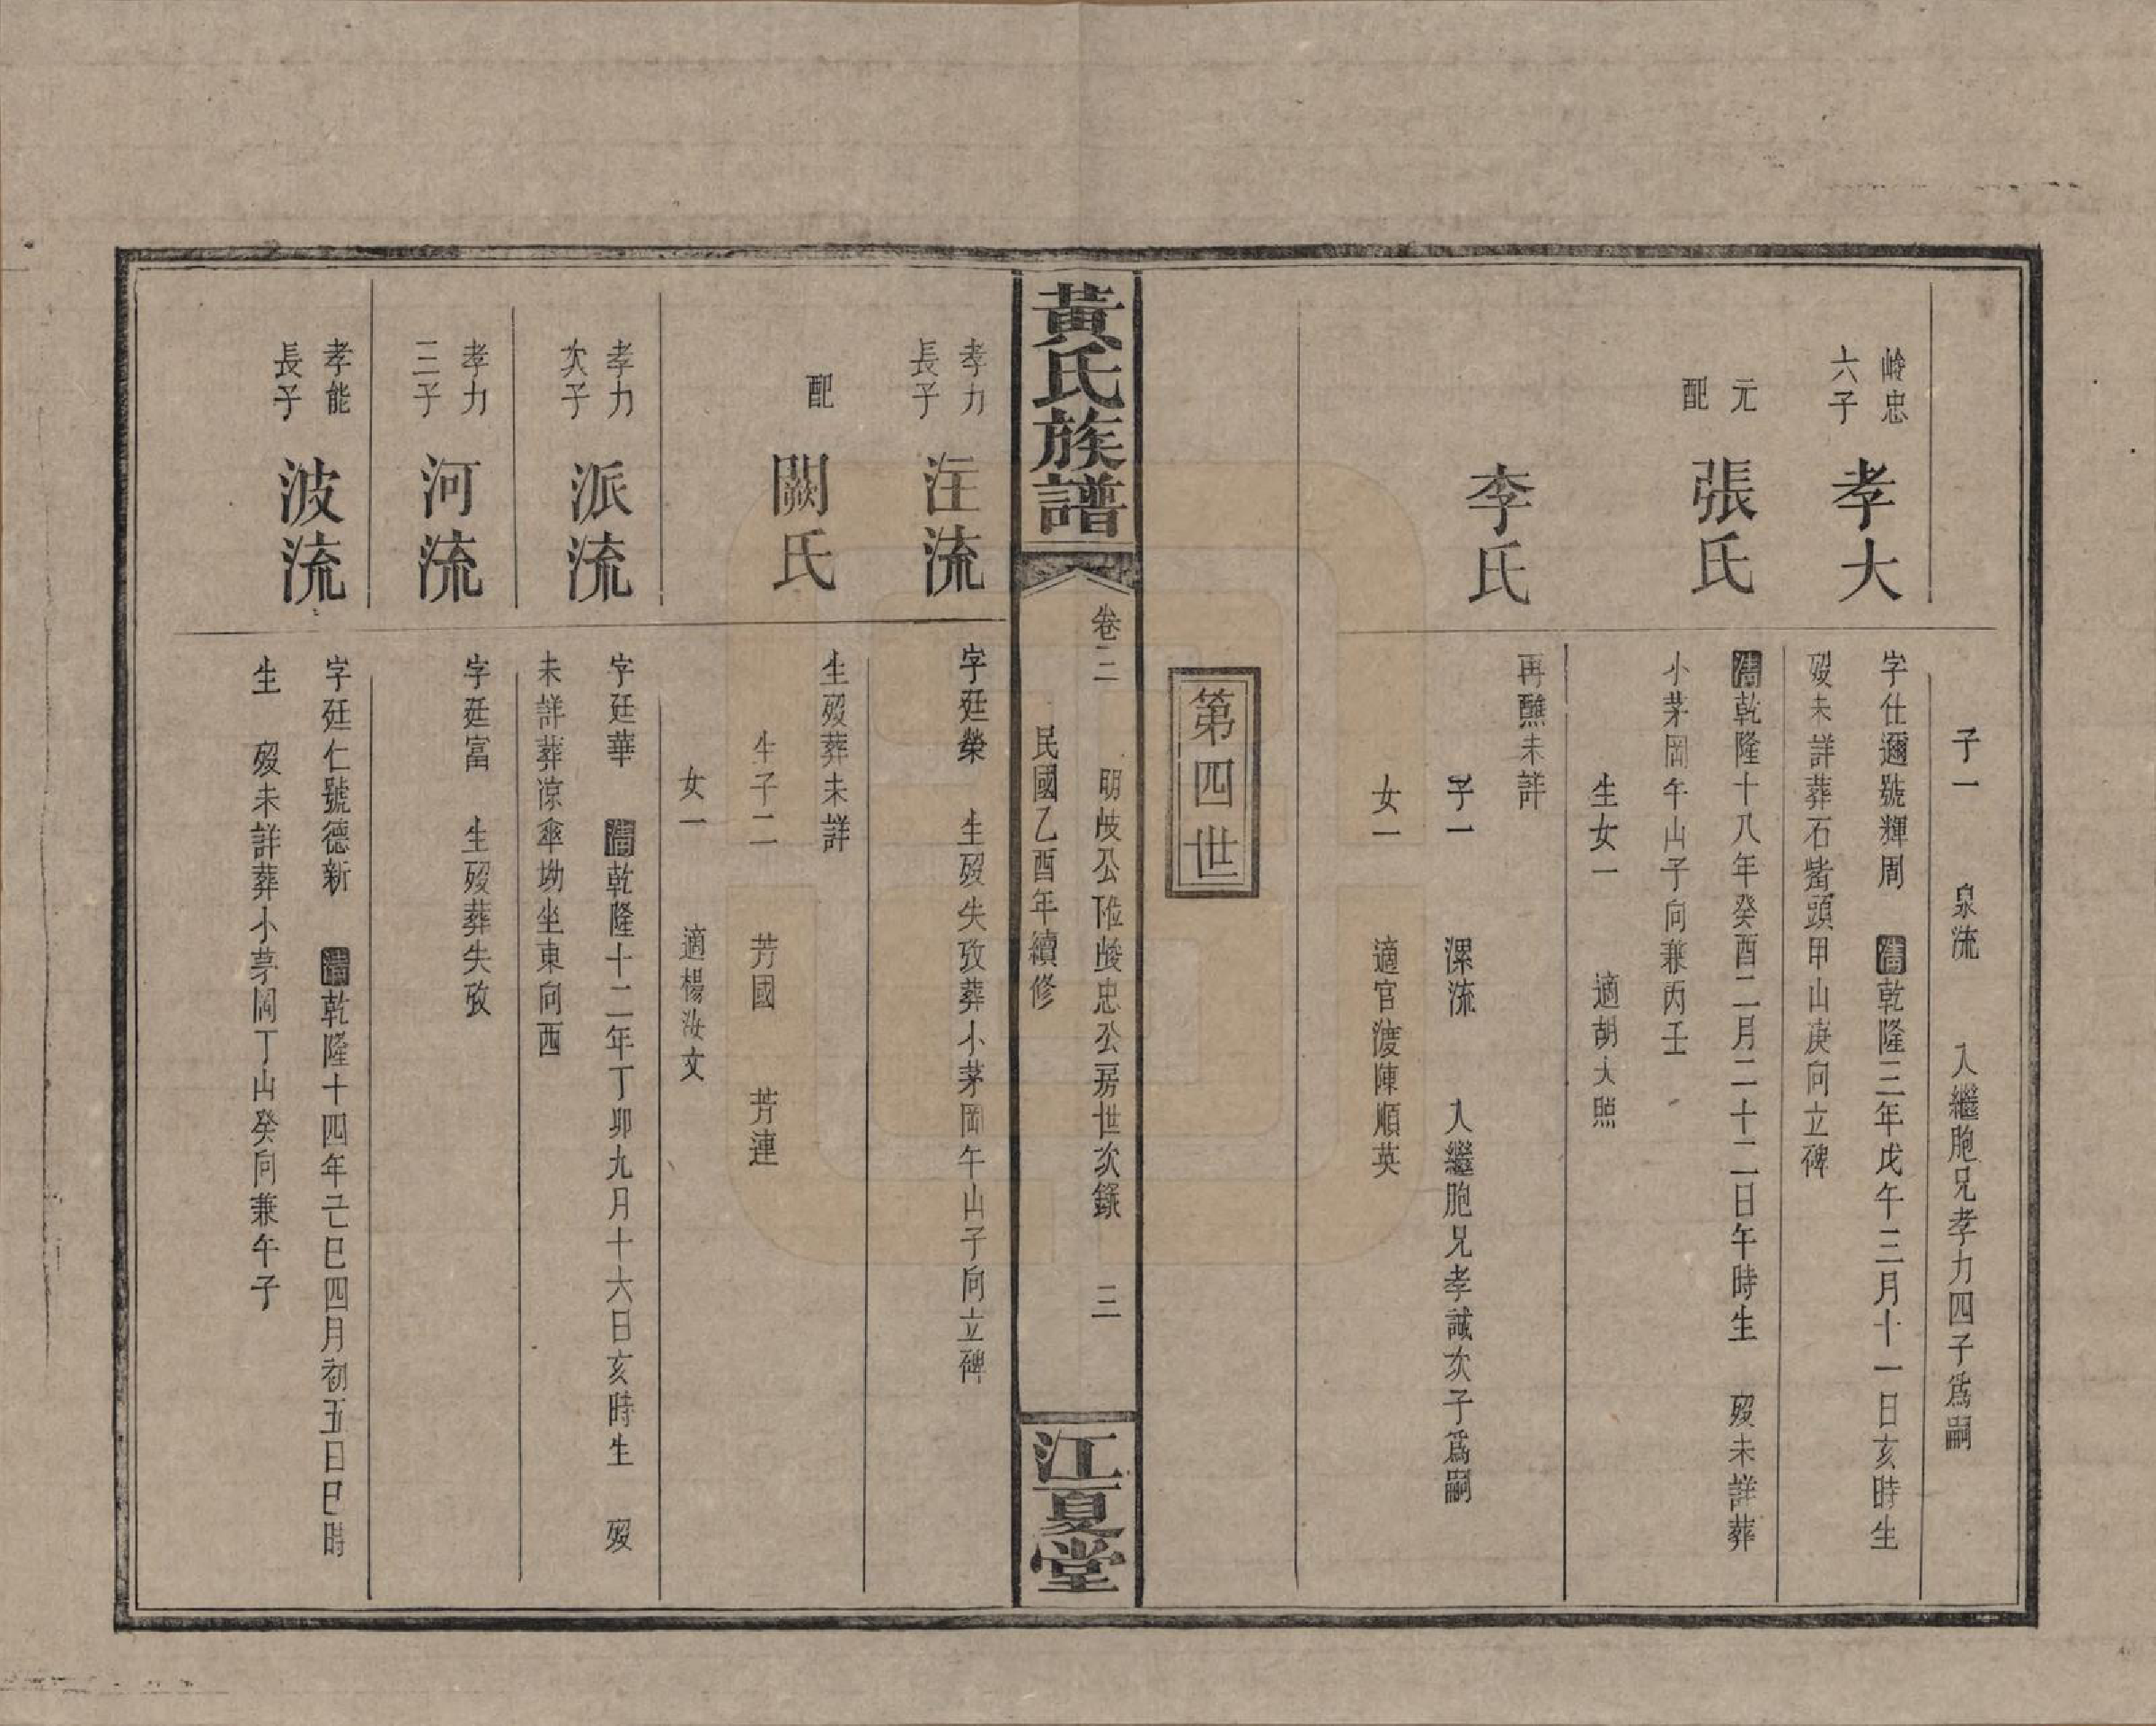 子一　泉流　入繼胞兄孝力四子爲嗣
峻忠
六子
孝大
字仕邇號輝周　清乾隆三年戊午三月十一日亥時生
歿未詳葬石嘴頭甲山庚向立碑
元
配
張氏
清乾隆十八年癸酉二月二十二日午時生　歿未詳葬
小茅岡午山子向兼丙壬
生女一　適胡大照
李氏
再醮未詳
子一　漯流　入繼胞兄孝誠次子爲嗣
女一　適官渡陳順英
第四世
黃氏族譜
卷二　明岐公陞峻忠公房世次錄　三
民國乙酉年續修
江夏堂
孝力
長子
汪流
字廷榮　生歿失攷葬小茅岡午山子向立碑
配
闕氏
生歿葬未詳
生子二　芳國　芳連
女一　適楊汝文
孝力
次子
派流
字廷華　清乾隆十二年丁卯九月十六日亥時生　歿
未詳葬凉傘坳坐東向西
孝力
三子
河流
字廷富　生歿葬失攷
孝能
長子
波流
字廷仁號德新　清乾隆十四年己巳四月初五日巳時
生　歿未詳葬小茅岡丁山癸向兼午子